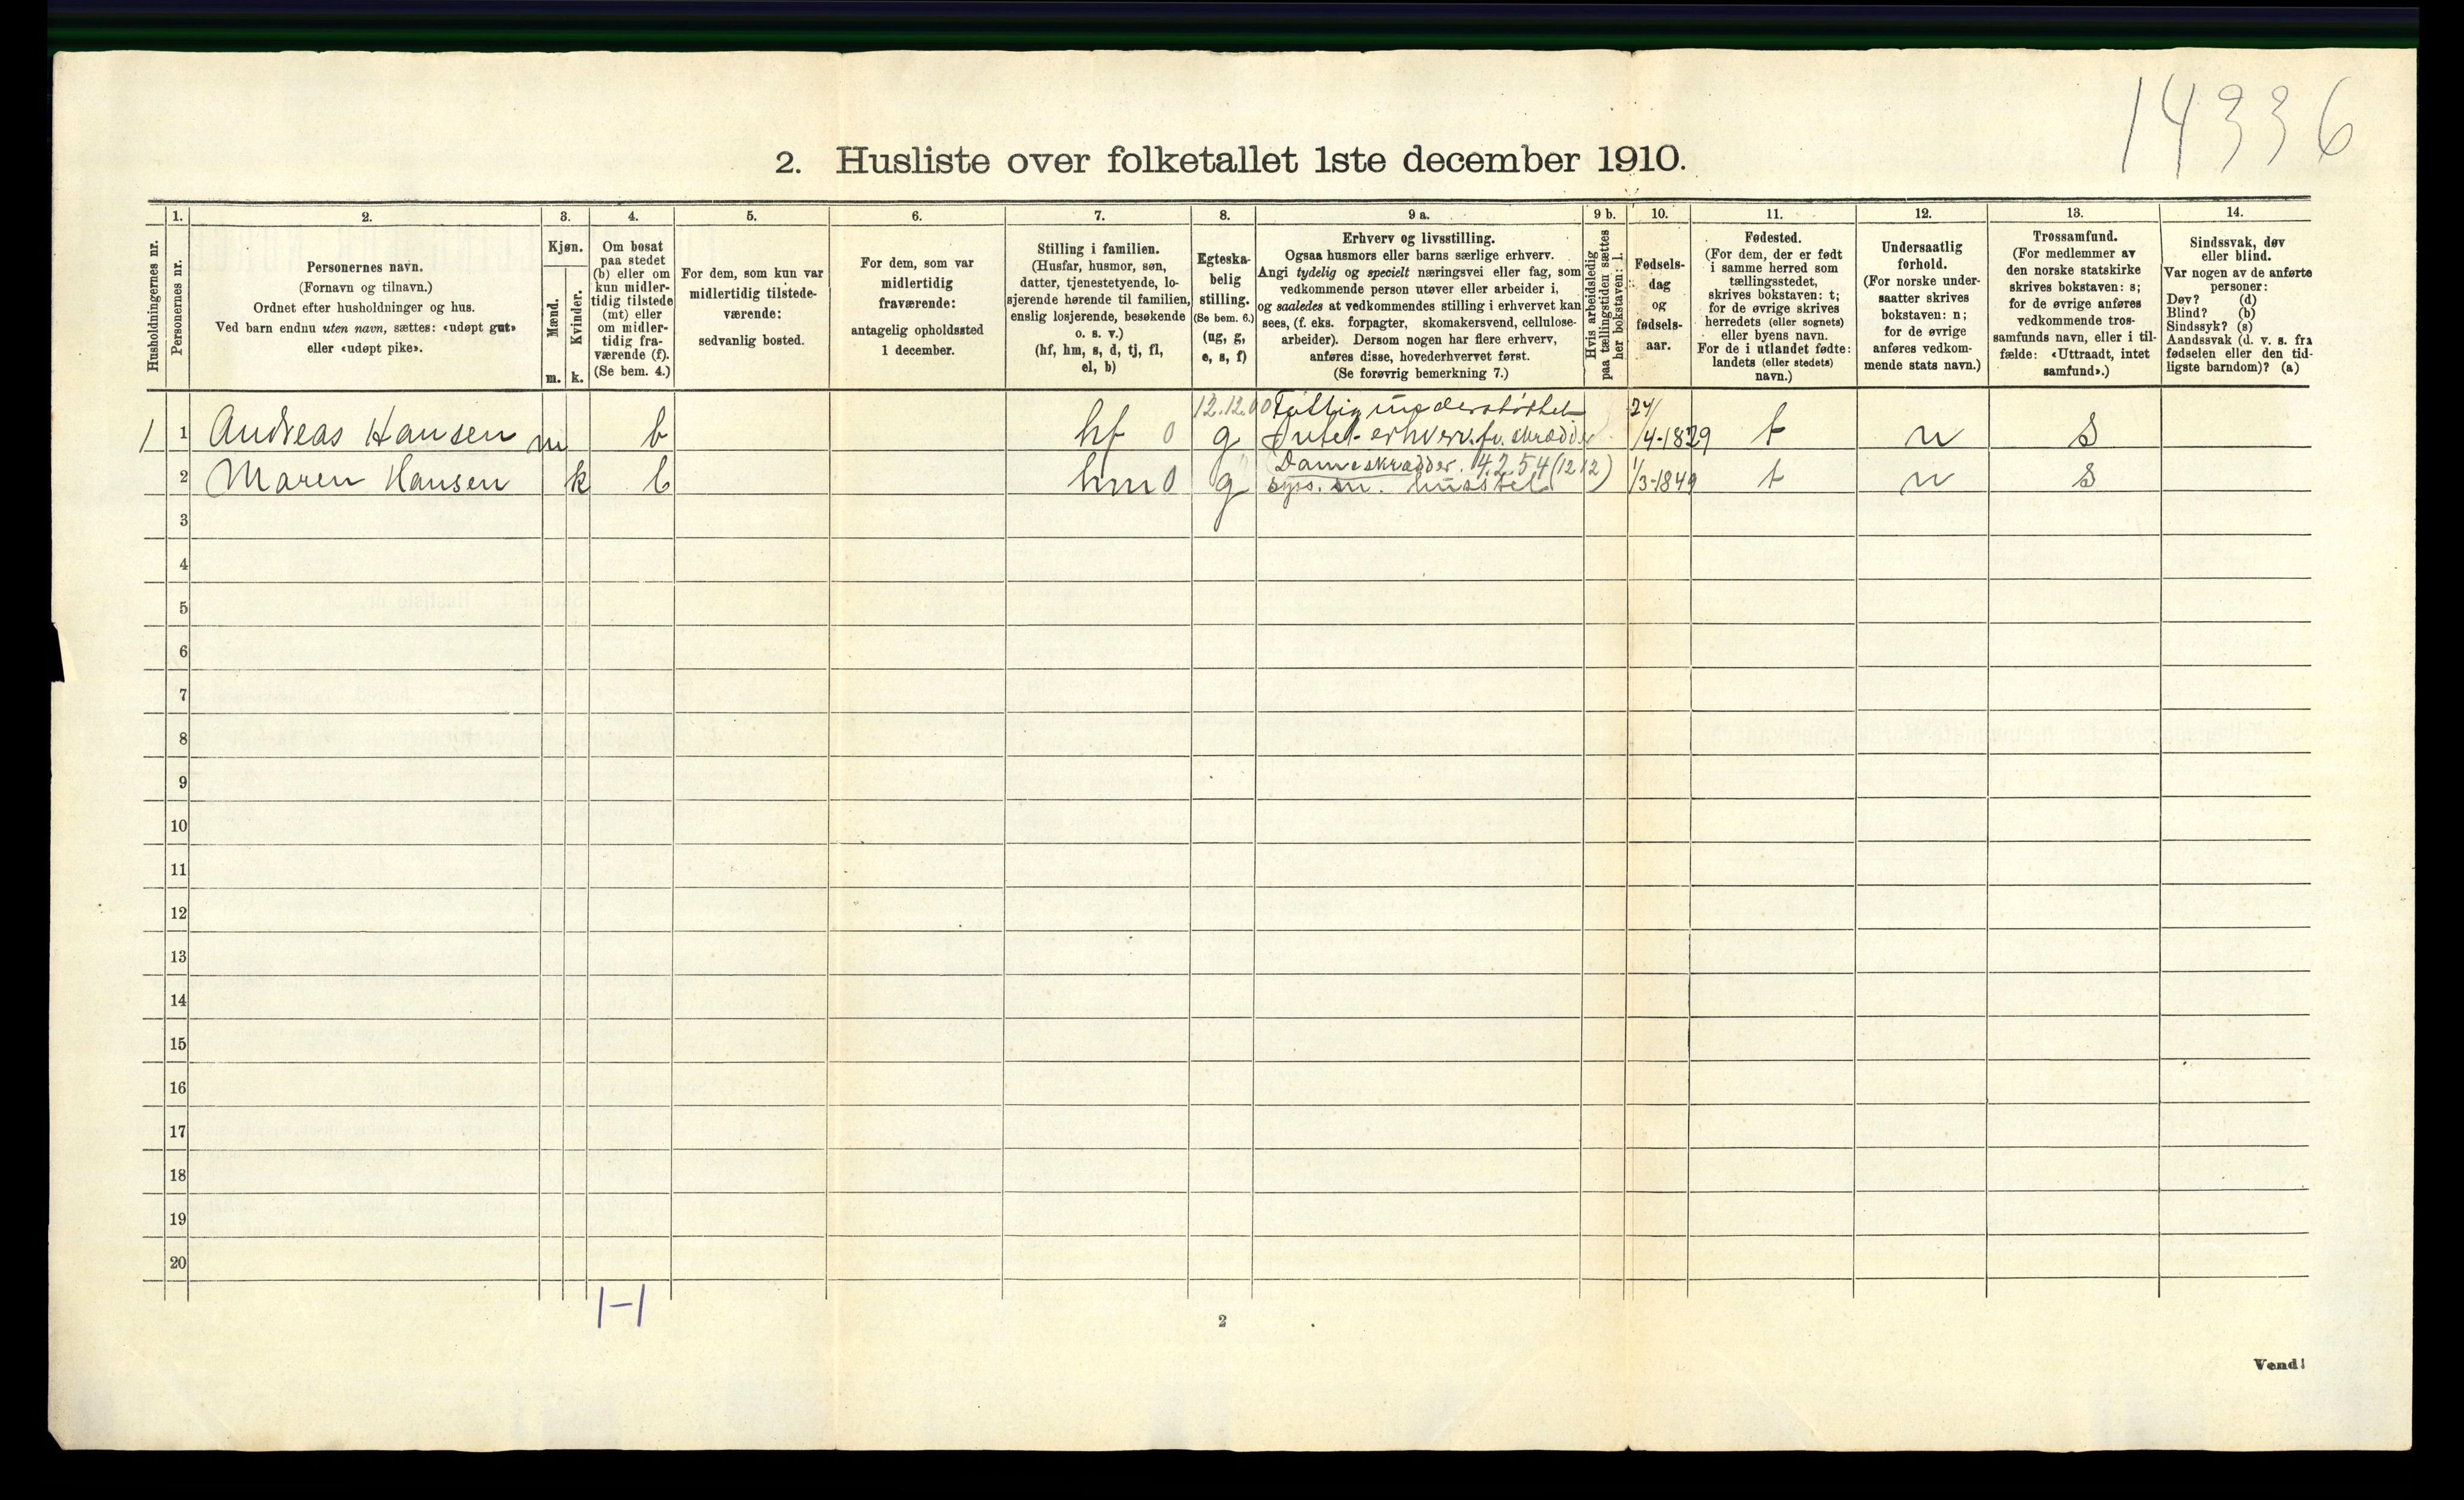 14336
2. Husliste over folketallet 1ste december 1910.
Husholdningernes nr.
1.
Personernes nr.
2.
Personernes navn.
(Fornavn og tilnavn.)
Ordnet efter husholdninger og hus.
Ved barn endnu uten navn, sættes: «udøpt gut»
eller «udøpt pike».
3.
Kjøn.
Mænd.
m.
Kvinder.
k.
4.
Om bosat
paa stedet
(b) eller om
kun midler-
tidig tilstede
(mt) eller
om midler-
tidig fra-
værende (f).
(Se bem. 4.)
5.
For dem, som kun var
midlertidig tilstede-
værende:
sedvanlig bosted.
6.
For dem, som var
midlertidig
fraværende:
antagelig opholdssted
1 december.
7.
Stilling i familien.
(Husfar, husmor, søn,
datter, tjenestetyende, lo-
sjerende hørende til familien,
enslig losjerende, besøkende
o. s. v.)
(hf, hm, s, d, tj, fl,
el, b)
8.
Egteska-
belig
stilling.
(Se bem. 6.)
(ug, g,
e, s, f)
9 a.
Erhverv og livsstilling.
Ogsaa husmors eller barns særlige erhverv.
Angi tydelig og specielt næringsvei eller fag, som
vedkommende person utøver eller arbeider i,
og saaledes at vedkommendes stilling i erhvervet kan
sees, (f. eks. forpagter, skomakersvend, cellulose-
arbeider). Dersom nogen har flere erhverv,
anføres disse, hovederhvervet først.
(Se forøvrig bemerkning 7.)
9 b.
Hvis arbeidsledig
paa tællingstiden sættes
her bokstaven: l.
10.
Fødsels-
dag
og
fødsels-
aar.
11.
Fødested.
(For dem, der er født
i samme herred som
tællingsstedet,
skrives bokstaven: t;
for de øvrige skrives
herredets (eller sognets)
eller byens navn.
For de i utlandet fødte:
landets (eller stedets)
navn.)
12.
Undersaatlig
forhold.
(For norske under-
saatter skrives
bokstaven: n;
for de øvrige
anføres vedkom-
mende stats navn.)
13.
Trossamfund.
(For medlemmer av
den norske statskirke
skrives bokstaven: s;
for de øvrige anføres
vedkommende tros-
samfunds navn, eller i til-
fælde: «Uttraadt, intet
samfund».)
14.
Sindssvak, døv
eller blind.
Var nogen av de anførte
personer:
Døv? (d)
Blind? (b)
Sindssyk? (s)
Aandssvak (d. v. s. fra
fødselen eller den tid-
ligste barndom)? (a)
12.12.00 Fattig understøttet
1 1 Andreas Hansen m b hf 0 g Intet erhverv. fv. skrædder 24/4-1829 t n s
Dameskrædder. 4254 (12 12)
2 Maren Hansen k b hm 0 g sys. m. husstel 1/3-1849 t n s
3
4
5
6
7
8
9
10
11
12
13
14
15
16
17
18
19
20
1-1
2
Vend!